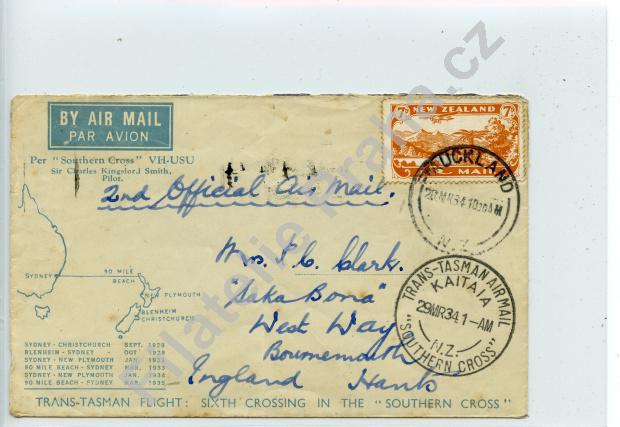 BY AIR MAIL
PAR AVION
Per "Southern Cross" VH-USU
Sir Charles Kingsford Smith,
Pilot.
2nd Official Air Mail.
7D NEW ZEALAND 7D
AIR MAIL
AUCKLAND
28MR34 10 AM
N.Z.
Mrs. F. C. Clark.
West Way
Bournemouth
England Hants
TRANS-TASMAN AIR MAIL
KAITAIA
29MR34 1-AM
N.Z.
"SOUTHERN CROSS"
SYDNEY
90 MILE
BEACH
NEW PLYMOUTH
BLENHEIM
CHRISTCHURCH
SYDNEY - CHRISTCHURCH SEPT. 1928
BLENHEIM - SYDNEY - OCT 1928
SYDNEY - NEW PLYMOUTH JAN. 1933
90 MILE BEACH - SYDNEY MAR. 1933
SYDNEY - NEW PLYMOUTH JAN. 1934
90 MILE BEACH - SYDNEY MAR.
TRANS-TASMAN FLIGHT: SIXTH CROSSING IN THE "SOUTHERN CROSS"